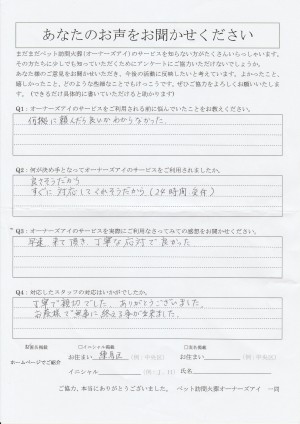 あなたのお声をお聞かせください
まだまだペット訪問火葬(オーナーズアイ)のサービスを知らない方がたくさんいらっしゃいます。
その方たちに少しでも知っていただくためにアンケートにご協力いただけないでしょうか。
あなた様のご意見をお聞かせいただき、今後の活動に反映したいと考えています。よかったこと、
嬉しかったこと、どのような些細なことでもけっこうです。ぜひ協力をよろしくお願いいたしま
す。(できるだけ具体的に書いていただけると助かります)
Q1:オーナーズアイのサービスをご利用される前に悩んでいたことをお教えください。
何処に頼んだら良いかわからなかった。
Q2:何が決め手となってオーナーズアイのサービスをご利用されましたか。
良さそうだから
すぐに対応してくれそうだから(24時間受付)
Q3:オーナーズアイのサービスを実際にご利用なさってみての感想をお聞かせください。
早速、来て頂き、丁寧な応対で良かった
Q4:対応したスタッフの対応はいかがでしたか。
丁寧で親切でした。ありがとうございました。
お蔭様で無事に終える事が出来ました。
ホームページでご紹介
□イニシャル掲載
お住まい 練馬区 (例:中央区)
イニシャル
□実名掲載
お住まい (例:中央区)
氏名
ご協力、本当にありがとうございました。 ペット訪問火葬オーナーズアイ 一同